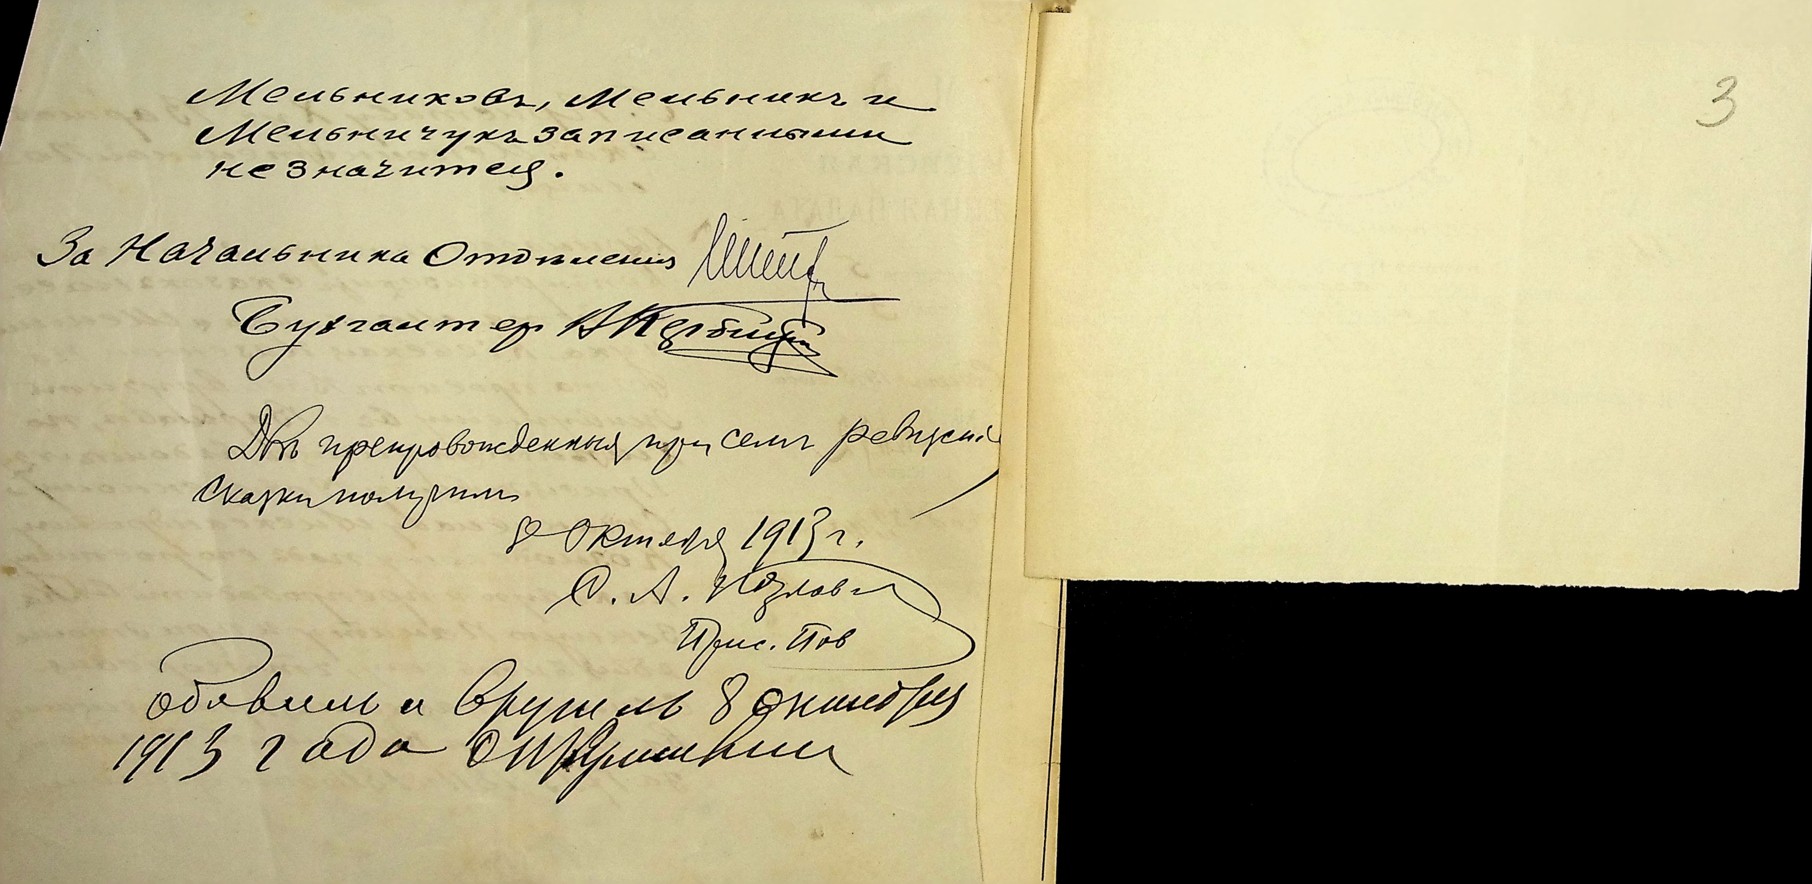 Мельниковъ, Мельникъ и
Мельничукъ записанными
не значится.
За Начальника Отдѣленія
Бухгалтеръ
Двѣ препровожденныя при семъ ревизскія
сказки получилъ
8 Октября 1913 г.
С. А. Козловъ
Прис. Пов
объявилъ и вручилъ 8 октября
1913 года
3